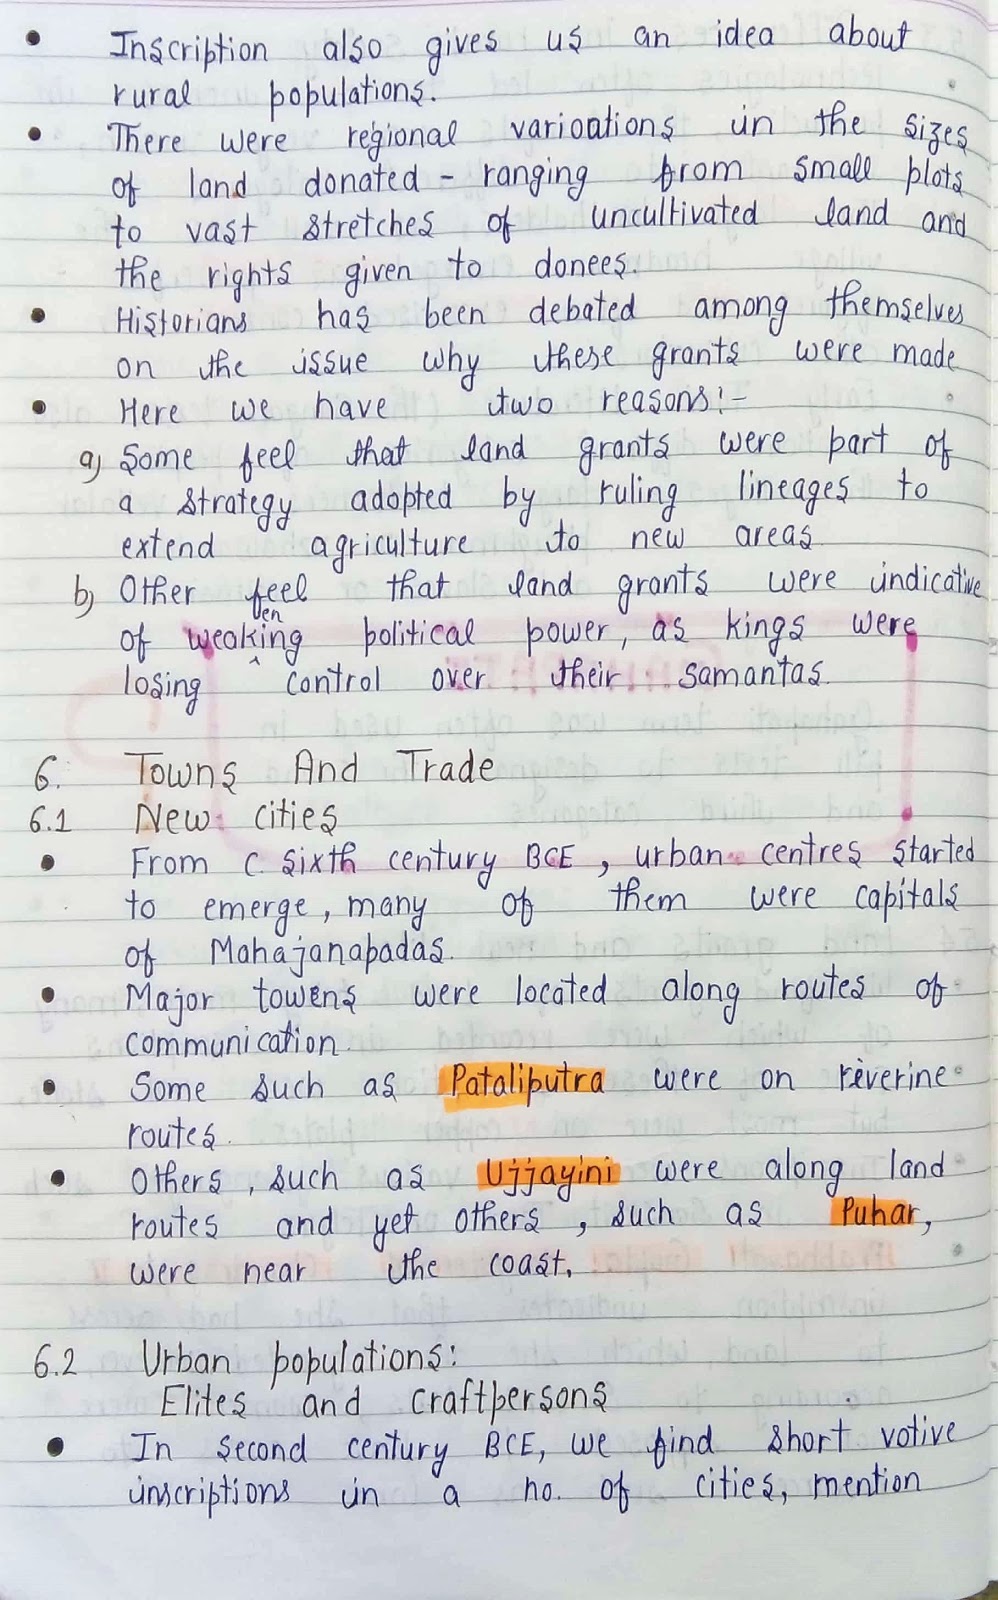 • Inscription also gives us an idea about
rural populations.
• There were regional varioations in the sizes
of land donated - ranging from small plots
to vast stretches of uncultivated land and
the rights given to donees.
• Historians has been debated among themselves
on the issue why these grants were made
• Here we have two reasons:-
a) Some feel that land grants were part of
a strategy adopted by ruling lineages to
extend agriculture to new areas
b) Other feel that land grants were indicative
en
of weaking political power, as kings were
losing ^ control over their samantas.
6. Towns And Trade
6.1 New cities
• From c. sixth century BCE, urban centres started
to emerge, many of them were capitals
of Mahajanapadas.
• Major towens were located along routes of
communication.
• Some such as Pataliputra were on reverine
routes.
• Others, such as Ujjayini were along land
routes and yet others, such as Puhar,
were near the coast.
6.2 Urban populations:
Elites and craftpersons
• In second century BCE, we find short votive
inscriptions in a no. of cities, mention